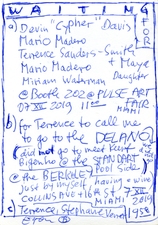 WAITING FOR
a) Davin "Cypher" Davis
Mario Madero
Terrence Sanders-Smith
Mario Madero + Maya
Miriam Waterman Daughter
@ Booth 202 @ PULSE ART
07 XII 2019 11 FAIR
MIAMI
b) for Terrence to call me
to go to the DELANO
did not go to meet Kerf
Bigenho @ the STANDART
Pool Side
@ the BERKLEY having wine
just by myself
COLLINS AVE + 16 ST 7 XII
MIAMI 2019
c) Terrence, Stephanie 19 58